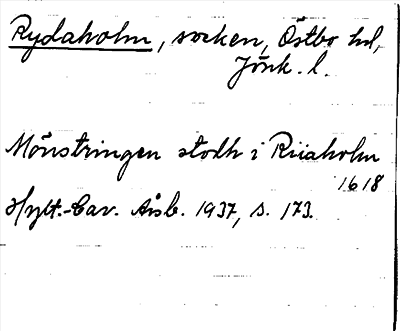 Rydaholm, socken, Östbo hd,
Jönk. l.
Mönstringen stodh i Riiaholm
1618
Hylt.-Cav. Årsb. 1937, s. 173.